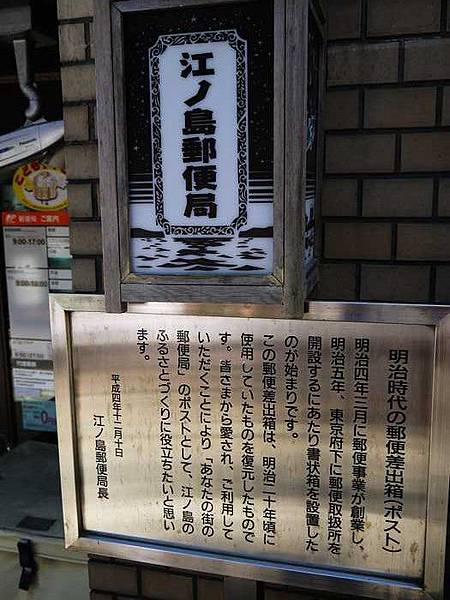 江ノ島郵便局
明治時代の郵便差出箱(ポスト)
明治四年三月に郵便事業が創業し、
明治五年、東京府下に郵便取扱所を
開設するにあたり書状箱を設置した
のが始まりです。
この郵便差出箱は、明治二十年頃に
使用していたものを復元したもので
す。皆さまから愛され、ご利用して
いただくことにより「あなたの街の
郵便局」のポストとして、江ノ島の
ふるさとづくりに役立ちたいと思い
ます。
平成四年十二月十日
江ノ島郵便局長
郵便局 ご案内
9:00-17:00
9:00-